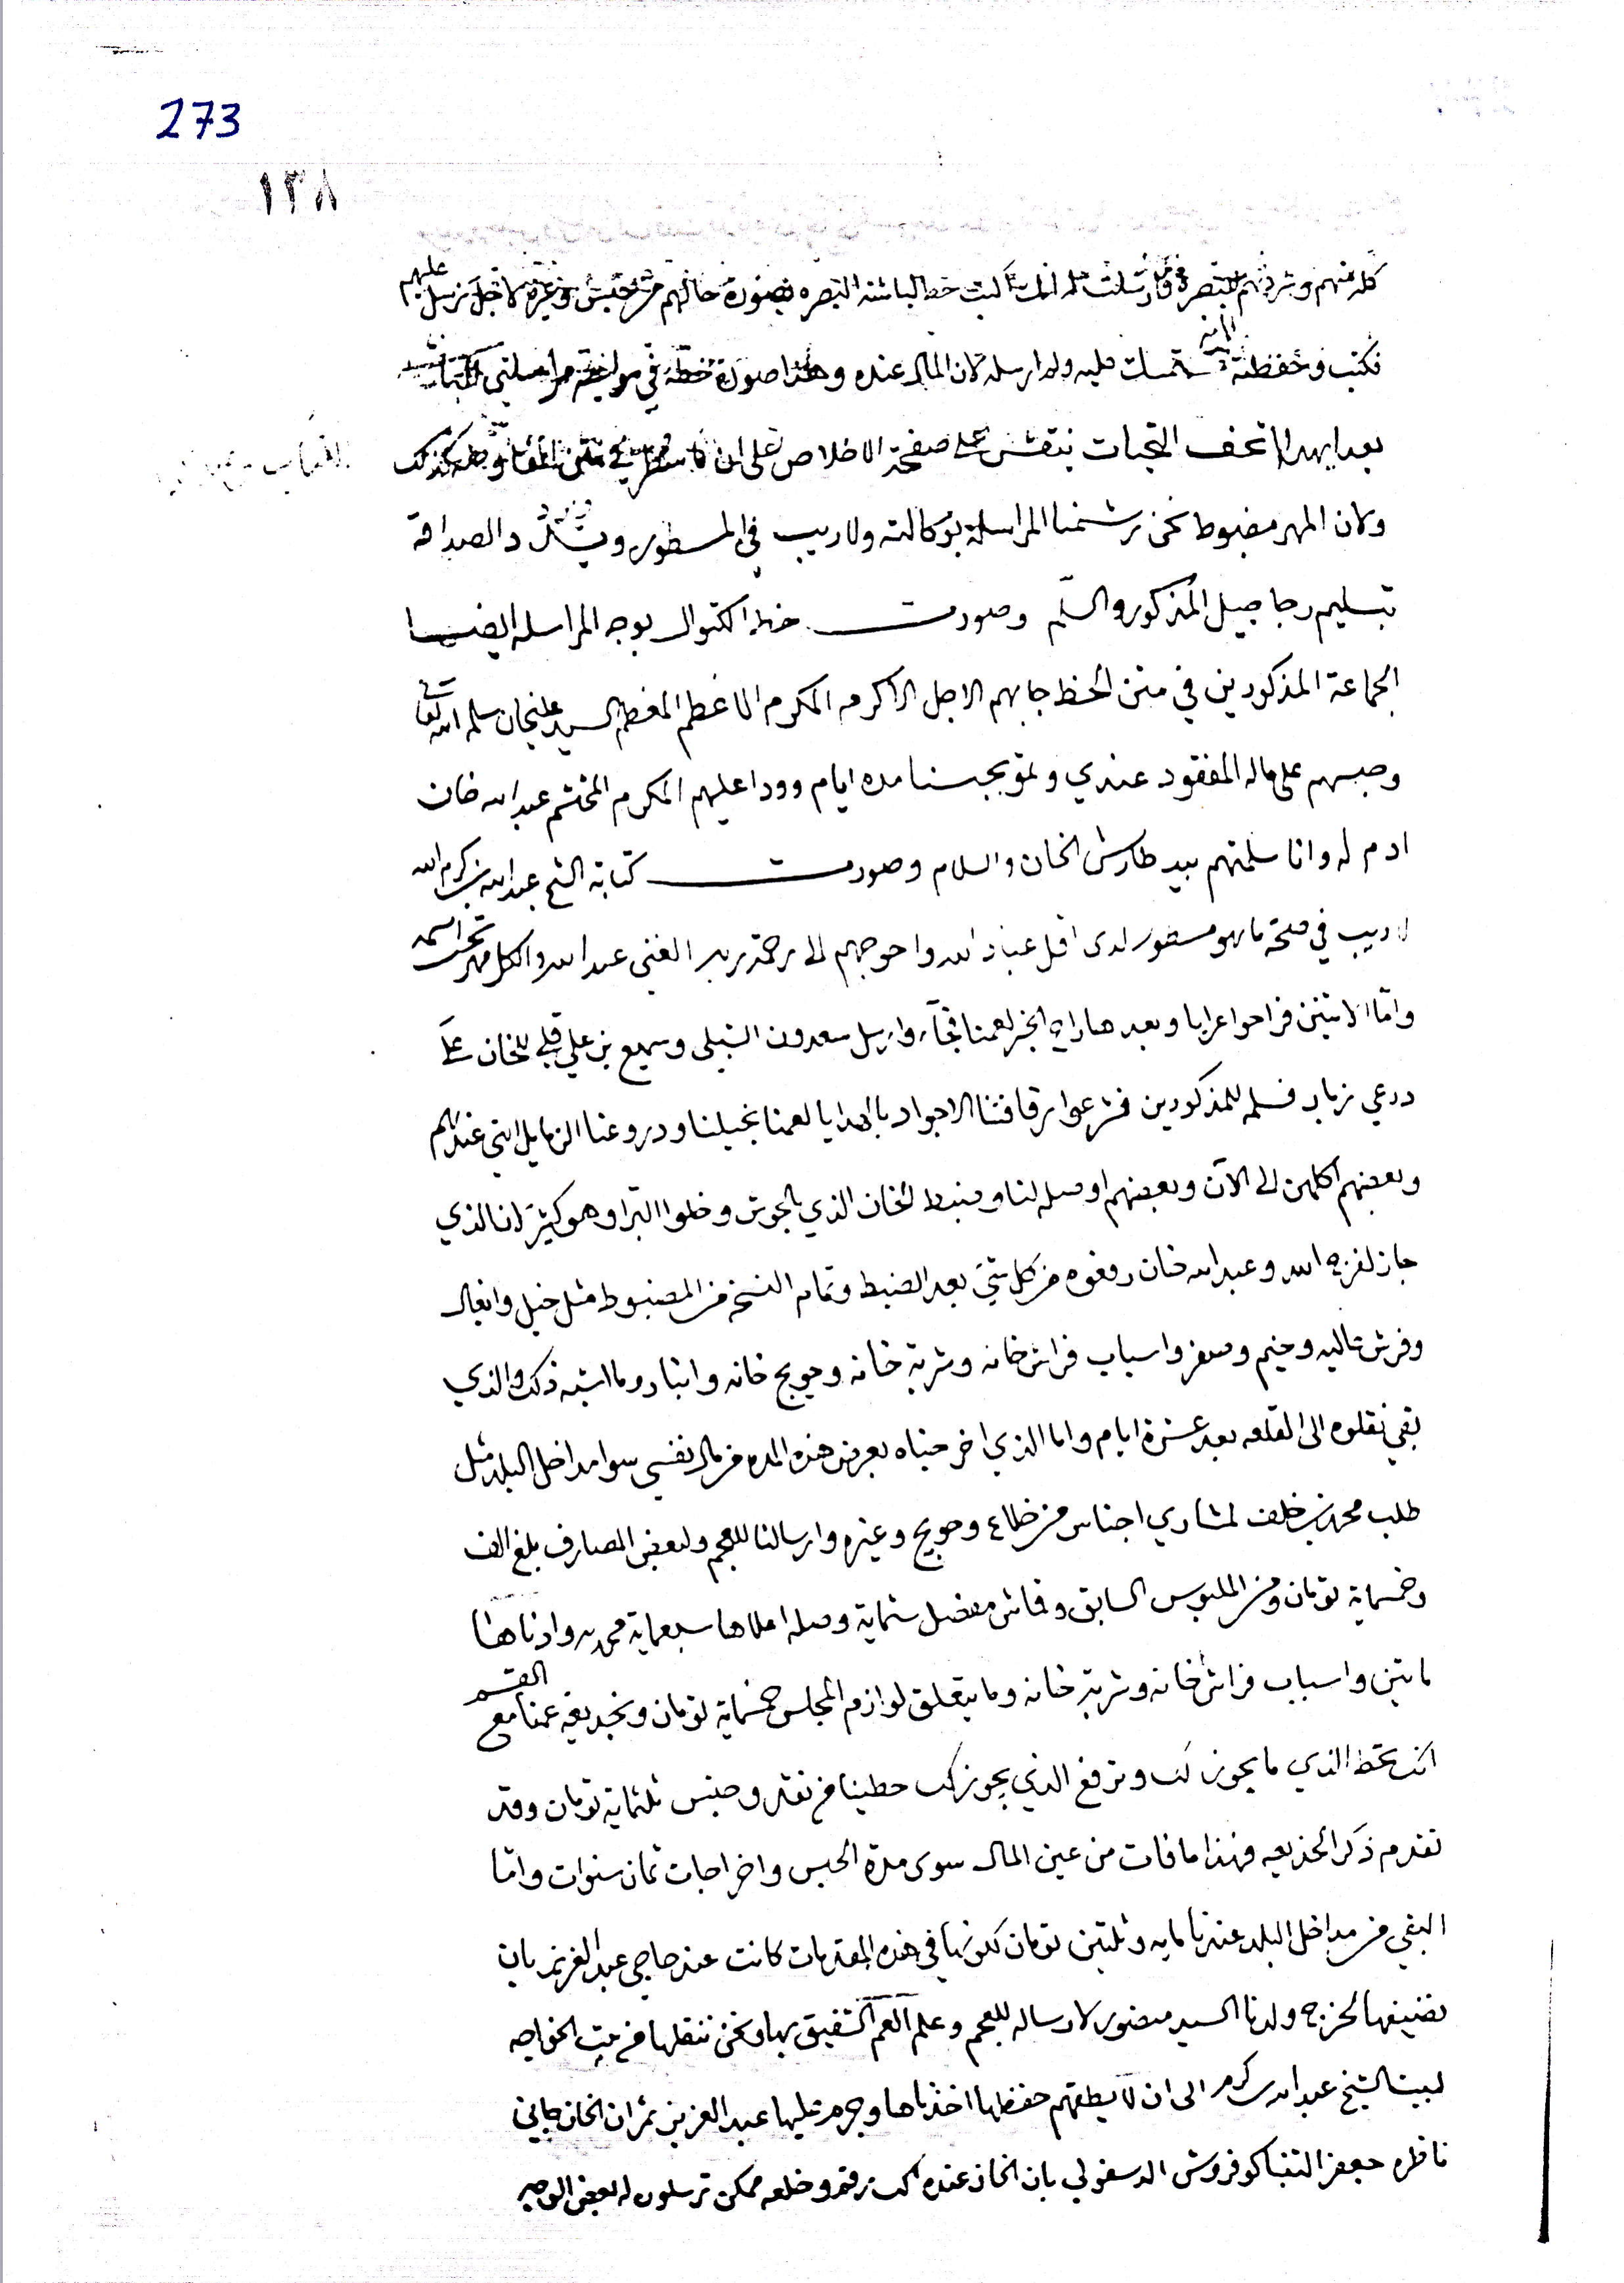 273
١٣٨
كله منهم وشردتهم للبصره وارسلت له انك كتبت خط لباشة البصره بصورة حالهم من حبس وغيره لاجل نرسل عليهم
فكتب وحفظته عليه ولم ارسله لان المال عنده وهذا صورة خطه في
بعد اهدا تحف التحيات ينقش على صفحة الاخلاص على ان ما سطر في متن كذلك
ولان المهر مضبوط نحن رشمنا المراسلة بوكالته ولا ريب في المسطور الصداقة
تسليم رجا جبيل المذكور والسلم وصورت خط الكتوال بوجه المراسله ايضا
الجماعة المذكورين في متن الخط جابهم الاجل الاكرم المكرم الاعظم المعظم السيد عليخان سلمه الله تعالى
وحبسهم على ماله المفقود عندي ولمو بحبسنا مده ايام وودا عليهم المكرم المحتشم عبد الله خان
ادم له وانا سلمتهم بيد طارش الخان والسلام وصورت كتابة الشيخ عبد الله بن كرم الله
لا ريب في صحة ما هو مسطور لدى اقل عباد الله واحوجهم الى رحمة ربه الغني عبد الله والكل مهر تحت اسمه
واما الاثنين فراحوا عرايا وبعد هاراح الخبر لعمنا فجآء وارسل سعدون النبلي وسميع بن علي قلي للخان على
درعي زباد فسلمه للمذكورين فشرعوا رفاقتنا الاجواد بالهدايا لعمنا بخيلنا ودروعنا الزمايل التي عندهم
وبعضهم اكلهن الى الآن وبعضهم اوصله لنا وضبط الخان الذي بالحوش وخلوا البرا وهو كثير انا الذي
جاز لفرج الله وعبد الله خان رفعوه من كل شي بعد الضبط وتمام النسخه من المضبوط مثل خيل وابغال
وفرش عاليه وخيم وصفر واسباب فراش خانه وشربة خانه وحويج خانه وانبار وما اشبه ذلك والذي
بقي نقلوه الى القلعه بعد عشرة ايام واما الذي اخرجناه بعرض هذه المده من مال نفسي سوا مداخل البلد مثل
طلب محمد بن خلف لمشاري اجناس من خلاع وحويج وغيره وارسالنا للعجم ولبعض المصارف بلغ الف
وخمسماية تومان ومن الملبوس السابق وقماش مفضل ستماية وصله اعلاها سبعماية محمديه وادناها
مايتين واسباب فراش خانه وشربة خانه وما يتعلق لوازم المجلس خمسماية تومان وبخديعة عمنا مع القسم
انك تحط الذي ما يجوز لك وترفع الذي يجوز لك حطينا من نقد وجنس ثلثماية تومان وقد
تقدم ذكر الخديعه فهذا ما فات من عين المال سوى مدة الحبس واخراجات ثمان سنوات واما
البقي من مداخل البلد عندنا مايه وثلثين تومان لكونها في هذه المقدمات كانت عند حاجي عبد العزيز بان
نضيفها لخرج ولدنا السيد منصور لارساله للعجم وعلم العم الشفيق بها ونحن ننقلها من بيت الخواجه
لبيت الشيخ عبد الله كرم الى ان لا يطقهم حفظها اخذناها وجرم عليها عبد العزيز ثم ان الخان جاني
ناظره جعفر التنباكو فروش الدسفولي بان الخان عنده لك رقم وخلعه ممكن ترسلون له بعض الوجه